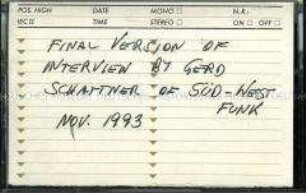 POS. HIGH DATE MONO □ N.R.:
IEC II TIME STEREO □ ON □ OFF □
FINAL VERSION OF
INTERVIEW BY GERD
SCHATTNER OF SÜD-WEST
FUNK
NOV. 1993